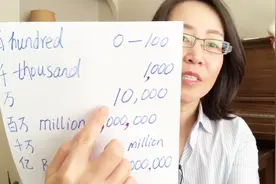 hundred 0-100
千 thousand 1,000
万 10,000
百万 million ,000,000
million
亿 000,000